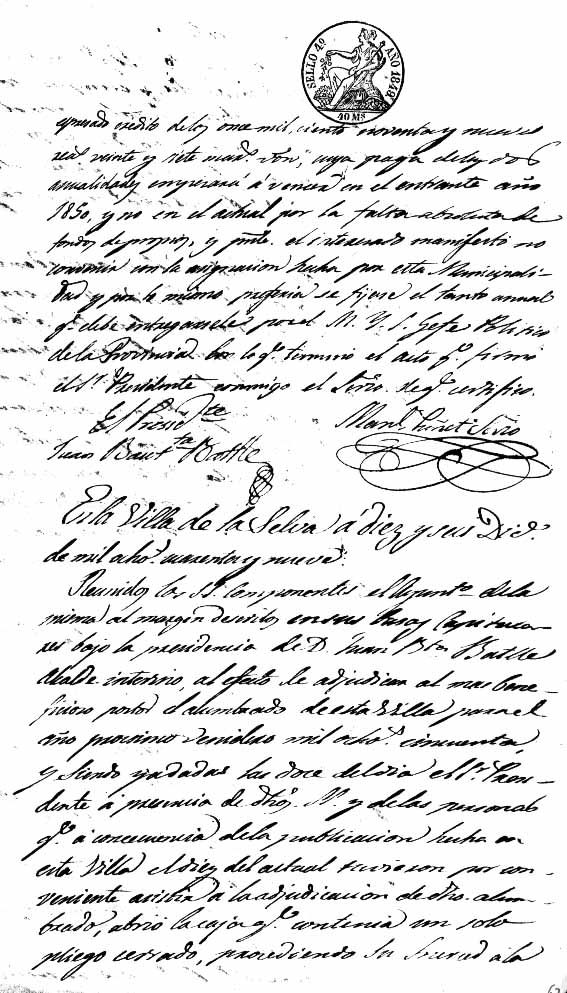 SELLO 4º AÑO 1849
40 Ms
expresado credito de los once mil, ciento noventa y nueve
reas veinte y siete mads. von, cuya paga de las dos
anualidades empezará á vencer en el entrante año
1850, y no en el actual por la falta absoluta de
fondos de propios, y pnte. el interesado manifestó no
convenia con la asignacion hecha por esta Municipali-
dad y por lo mismo preferia se fijase el tanto anual
q.e debe entregarsele por el M. Y. S. Gefe Politico
de la Provincia con lo q.e terminó el acto q.e firmó
el Sr. Presidente conmigo el Srio. de q.e certifico.
El Presidte
Juan Bautta Batlle
Manl. Srio
En la Villa de la Selva á diez y seis Dice.
de mil ocho.s cuarenta y nueve.
Reunidos los SS. componentes el Ayunto. de la
misma al margen descritos en sus Casas Capitula-
res bajo la presidencia de D. Juan Bta Batlle
Alcalde interino, al efecto de adjudicar al mas bene-
ficioso postor el alumbrado de esta Villa para el
año procsimo venidero mil ocho.s cincuenta,
y siendo ya dadas las doce del dia el Sr. Presi-
dente á presencia de dhos. y de las personas
q.e á concecuencia de la publicacion hecha en
esta Villa el diez del actual tuvieron por con-
veniente asistir á la adjudicacion de dho. alum-
brado, abrió la caja q.e contenia un solo
pliego cerrado, procediendo Su Merced á la